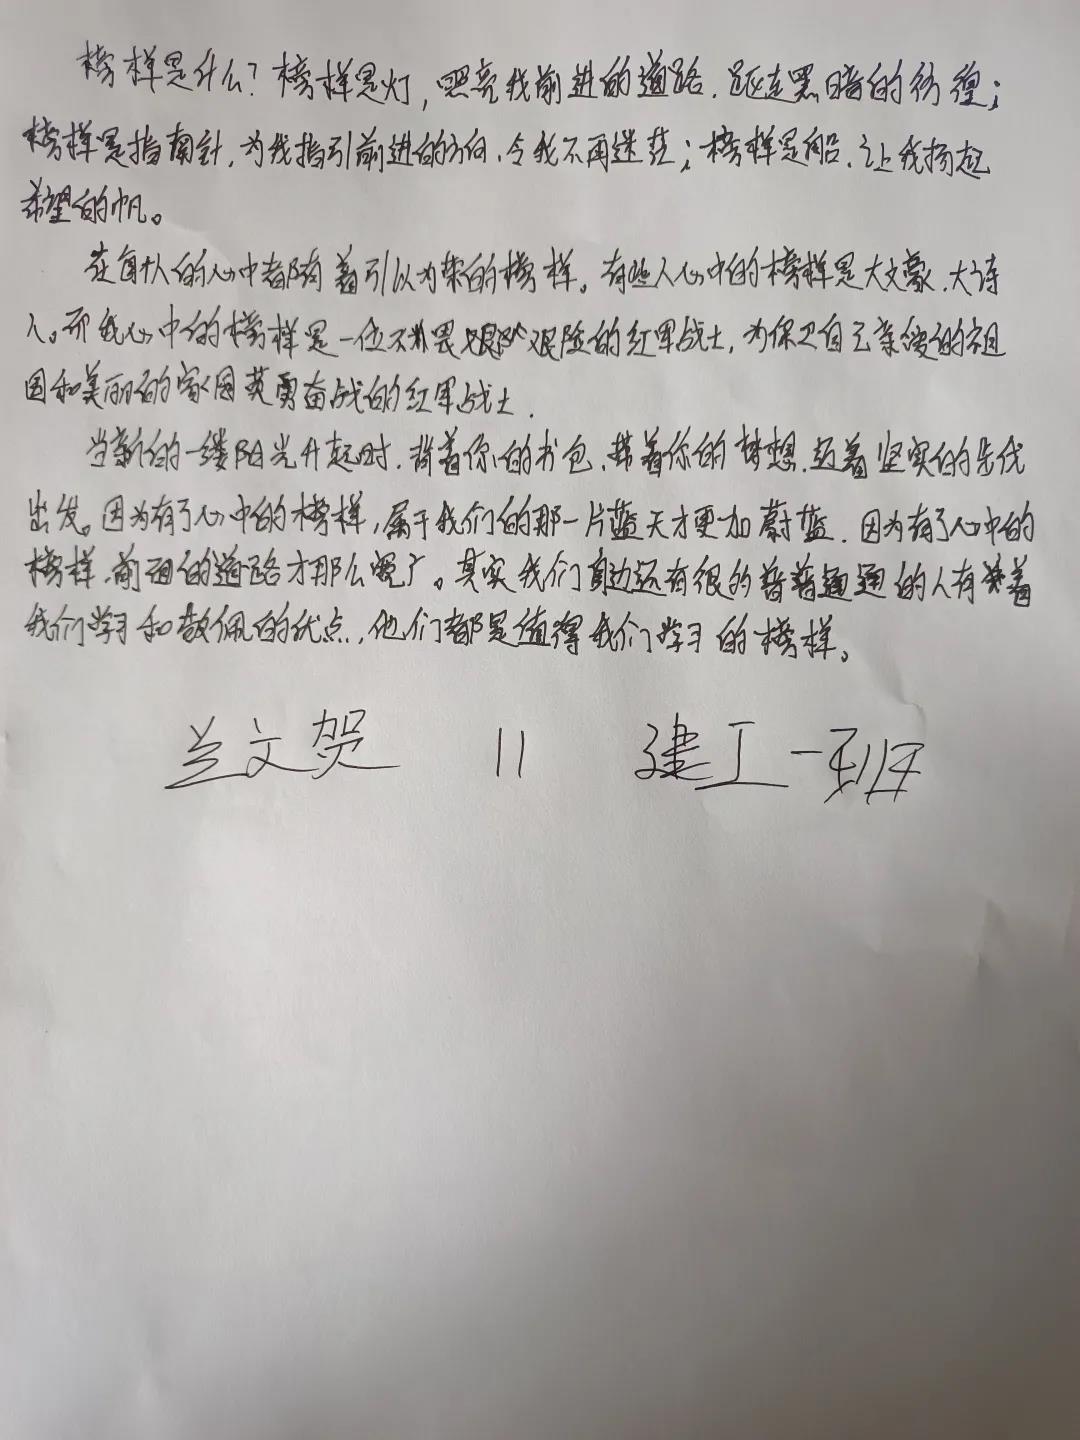 榜样是什么？榜样是灯，照亮我前进的道路．驱走黑暗的彷徨；
榜样是指南针，为我指引前进的方向，令我不再迷茫；榜样是船，让我扬起
希望的帆。
在每个人的心中都有着引以为荣的榜样。有些人心中的榜样是大文豪、大诗
人。而我心中的榜样是一位不畏艰险的红军战士，为保卫自己亲爱的祖
国和美丽的家园英勇奋战的红军战士．
当新的一缕阳光升起时．背着你的书包、带着你的梦想．迈着坚实的步伐
出发。因为有了心中的榜样，属于我们的那一片蓝天才更加蔚蓝．因为有了心中的
榜样，前面的道路才那么宽广。其实我们身边还有很多普普通通的人有着
我们学习和敬佩的优点，他们都是值得我们学习的榜样。
兰文贺 11 建工一班